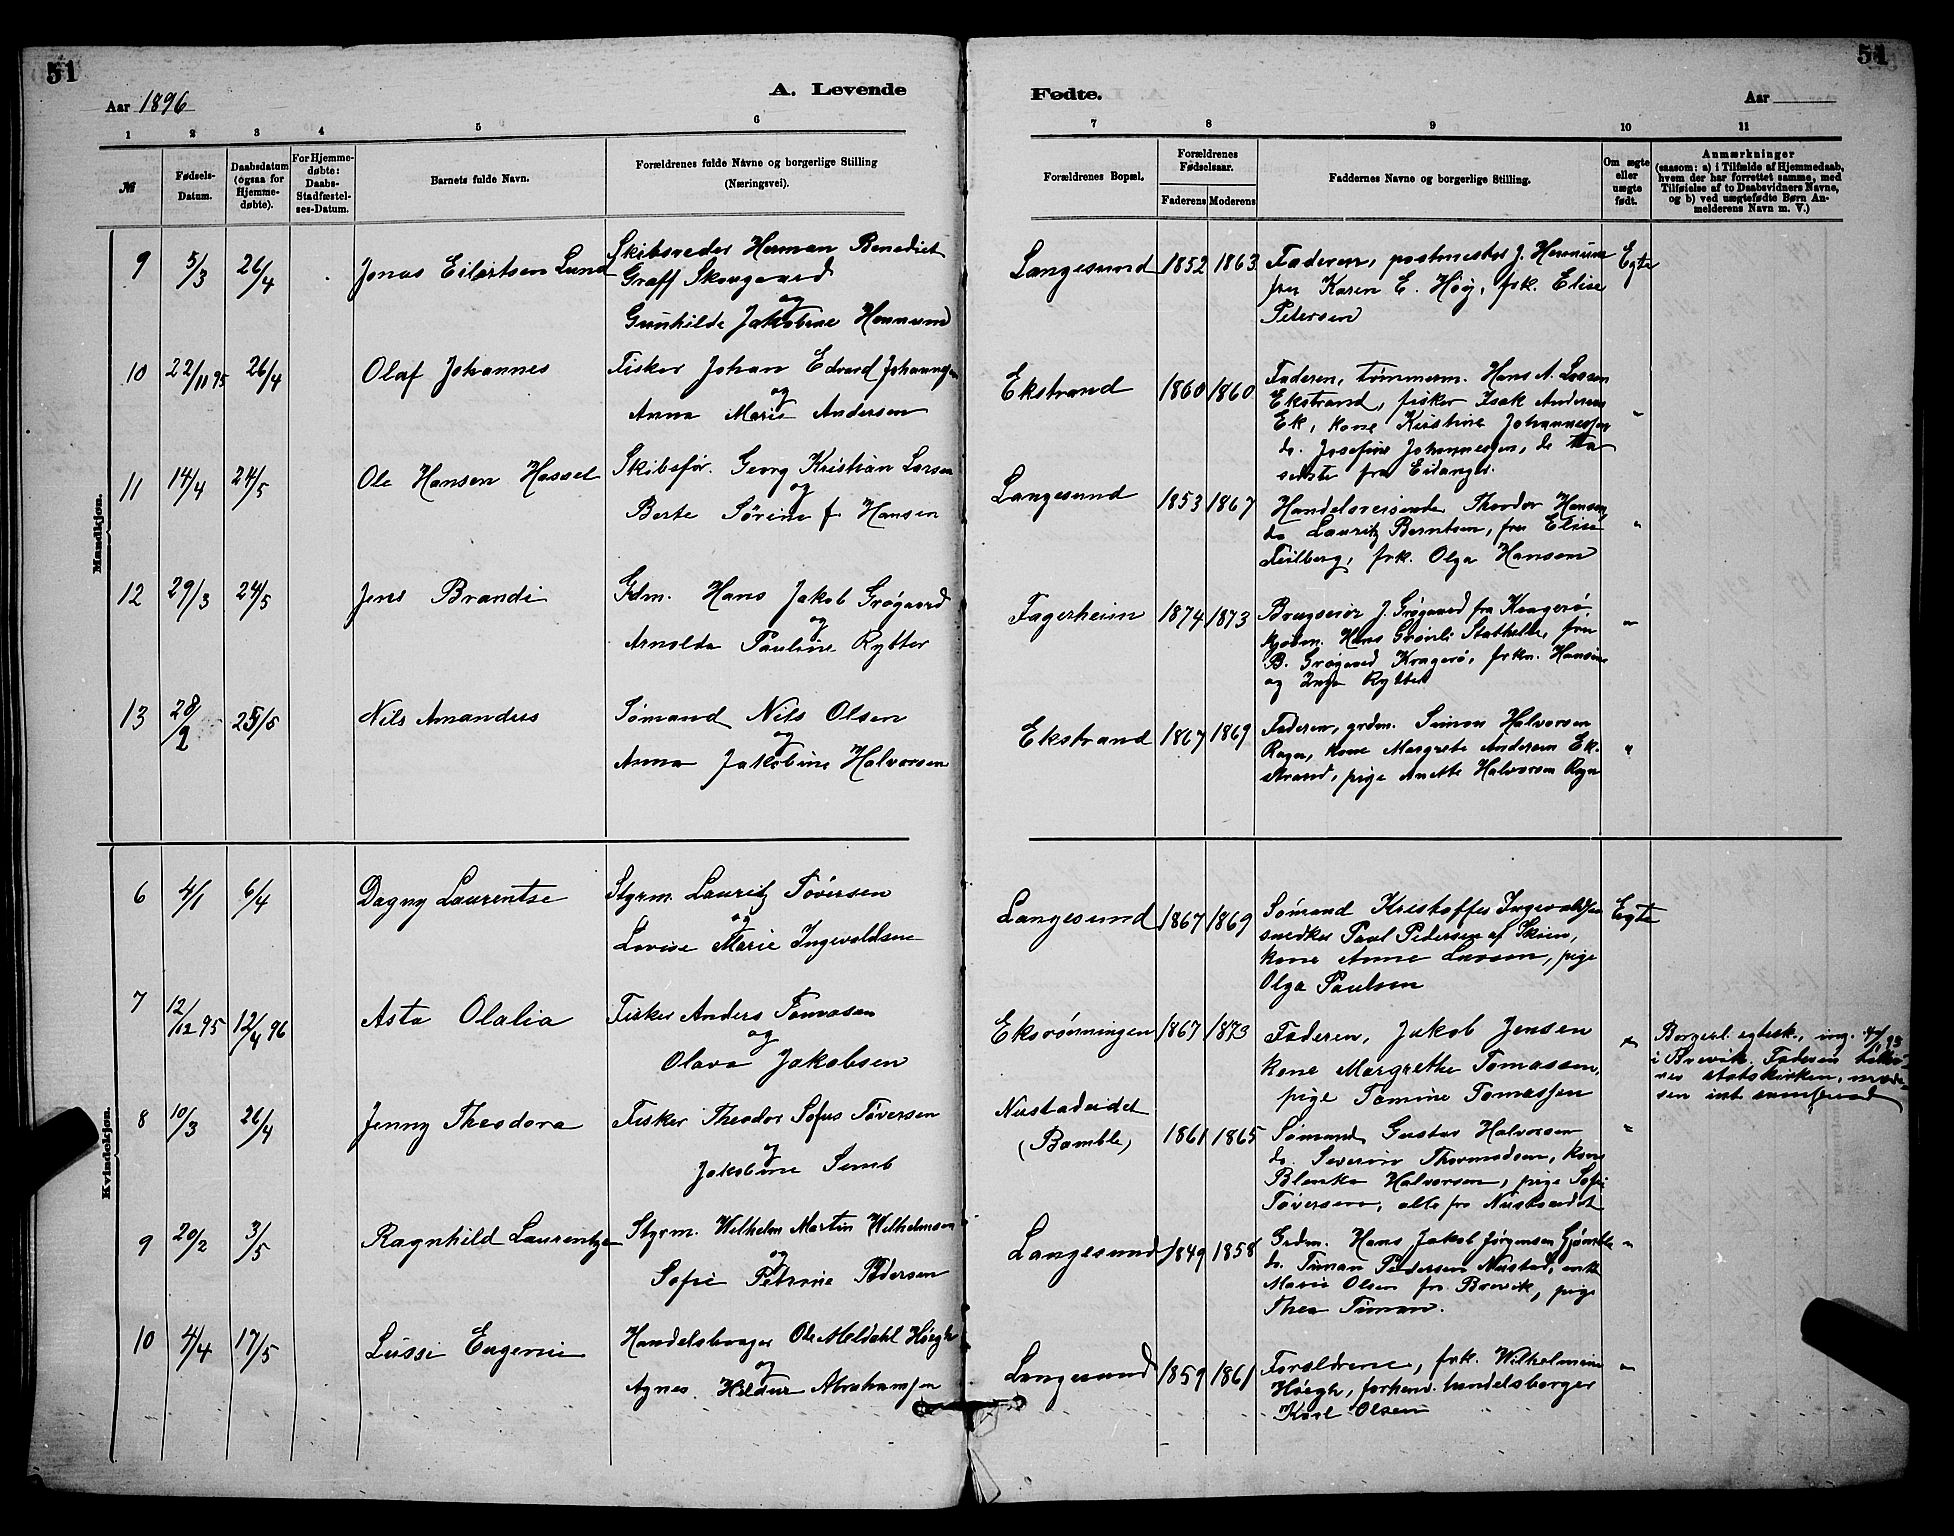 51
Aar 1896
A. Levende
1 2 3 4 5 6
№
Fødsels-
Datum.
Daabsdatum
(ogsaa for
Hjemme-
døbte).
For Hjemme-
døbte:
Daabs-
Stadfæstel-
ses-Datum.
Barnets fulde Navn.
Forældrenes fulde Navne og borgerlige Stilling
(Næringsvei).
Mandkjøn.
9 5/3 26/4 Jonas Eilertsen Lund
Skibsreder Herman Benedict
Graff Skougaard
og
Gunhilde Jakobine Hennum
10 22/11 95 26/4 Olaf Johannes
Fisker Johan Edvard Johannesen
og
Anna Marie Andersen
11 14/4 24/5 Ole Hansen Hassel
Skibsfør. Georg Kristian Larsen
og
Berte Sørine f. Hansen
12 29/3 24/5 Jens Brandi
Gdm. Hans Jakob Grøgaard
og
Arnolda Pauline Rytter
13 28/2 25/5 Nils Amandus
Sømand Nils Olsen
og
Anna Jakobine Halvorsen
Kvindekjøn.
6 4/1 6/4 Dagny Laurentse
Styrm. Lauritz Tøversen
og
Lovise Marie Ingevaldsen
7 12/12 95 12/4 96 Asta Olalia
Fisker Anders Tomasen
og
Olava Jakobsen
8 10/3 26/4 Jenny Theodora
Fisker Theodor Sofus Tøversen
og
Jakobine Semb
9 20/2 3/5 Ragnhild Laurentze
Styrm. Wilhelm Martin Wilhelmsen
og
Sofie Petrine Pedersen
10 4/4 17/5 Lussi Eugenie
Handelsborger Ole Meldahl Høegh
og
Agnes Hildur Abrahamsen
51
Fødte.
Aar
7 8 9 10 11
Forældrenes Bopæl.
Forældrenes
Fødselsaar.
Faderens Moderens
Faddernes Navne og borgerlige Stilling.
Om ægte
eller
uægte
født.
Anmærkninger
(saasom: a) i Tilfælde af Hjemmedaab,
hvem der har forrettet samme, med
Tilføielse af to Daabsvidners Navne,
og b) ved uægtefødte Børn An-
melderens Navn m. V.)
Langesund 1852 1863 Faderen, postmester J. Hennum Egte
fru Karen E. Høy, frk. Elise
Petersen
Ekstrand 1860 1860 Faderen, tømmerm. Hans A. Larsen "
Ekstrand, fisker Isak Andersen
Ek, kone Kristine Johannessen
do. Josefine Johannessen, de
sidste fra Eidanger.
Langesund 1853 1867 Handelsreisende Theodor Hansen, "
do Lauritz Berntsen, fru Elise
Feilberg, frk. Olga Hansen
Fagerheim 1874 1873 Brugseier J. Grøgaard fra Kragerø, "
kjøbm. Hans Grønli Stathelle, fru
B. Grøgaard Kragerø, frkn. Hansine
og Inga Rytter
Ekstrand 1867 1869 Faderen, grdm. Simon Halvorsen "
Rogn, kone Margrete Andersen Ek-
strand, pige Anette Halvorsen Rogn
Langesund 1867 1869 Sømand Kristoffer Ingevaldsen Egte
snedker Paul Pedersen af Skien,
kone Anne Larsen, pige
Olga Paulsen
1867 1873 Faderen, Jakob Jensen "
kone Margrethe Tomassen,
pige Tomine Tomassen
Borgerl. egtesk. ing.
i Brevik. Faderen
statskirken,
Nustadeidet
(Bamble) 1861 1865 Sømand Gustav Halvorsen "
do. Severin Thormodsen, kone
Blenka Halvorsen, pige Sofie
Tøversen, alle fra Nustadeidet
Langesund 1849 1858 Grdm. Hans Jakob Jørgensen "
do. Timan Pedersen Nustad, enke
Marie Olsen fra Brevik, pige
Thea Timan.
Langesund 1859 1861 Forældrene, frk. Wilhelmine "
Høegh, forhenv. handelsborger
Karl Olsen